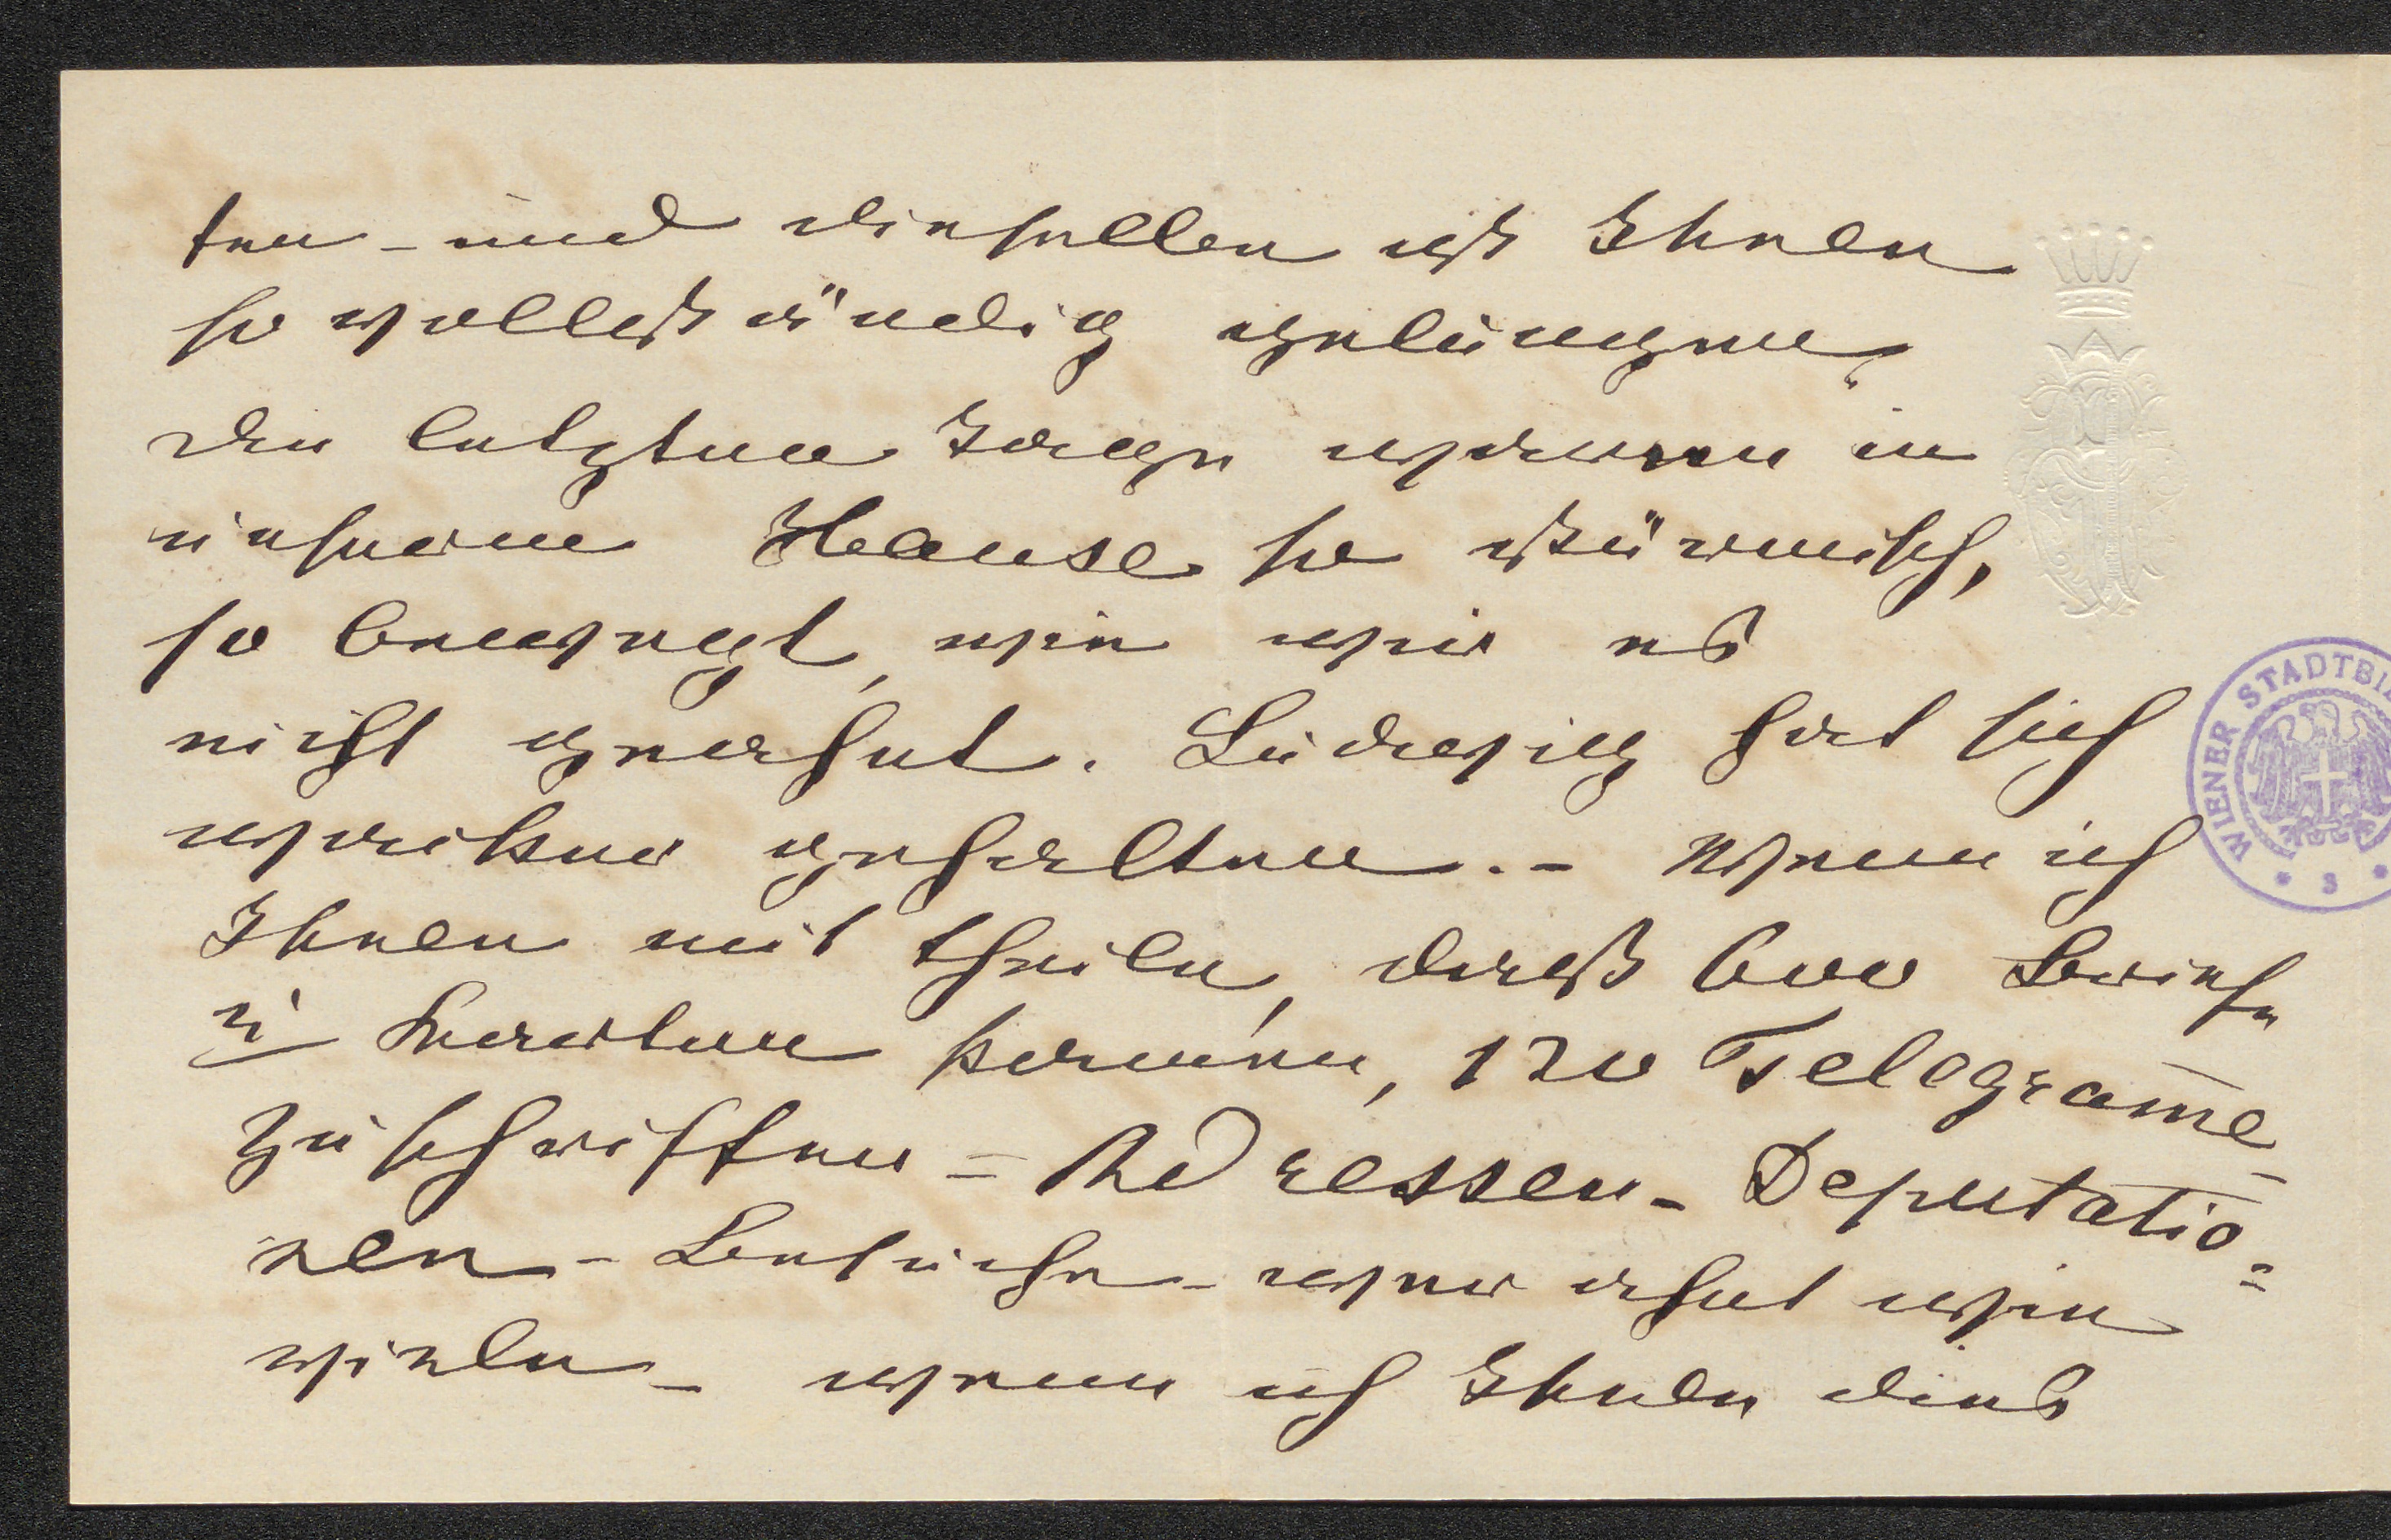 ten - und dieselben ist Ihnen
so vollständig gelungen,
Die letzten Tage waren in
unserem Hause so stürmisch,
so bewegt, wie wir es
nicht geahnt. Ludwig hat sich
wacker gehalten. - Wenn ich
Ihnen mit theile, dass 600 Briefe
u Karten kamen, 120 Telegrame
Zuschriften = Adressen - Deputatio=
nen - Besuche - wer ahnt wie
viele - wenn ich Ihnen dies
WIENER STADTBI
* 3 *